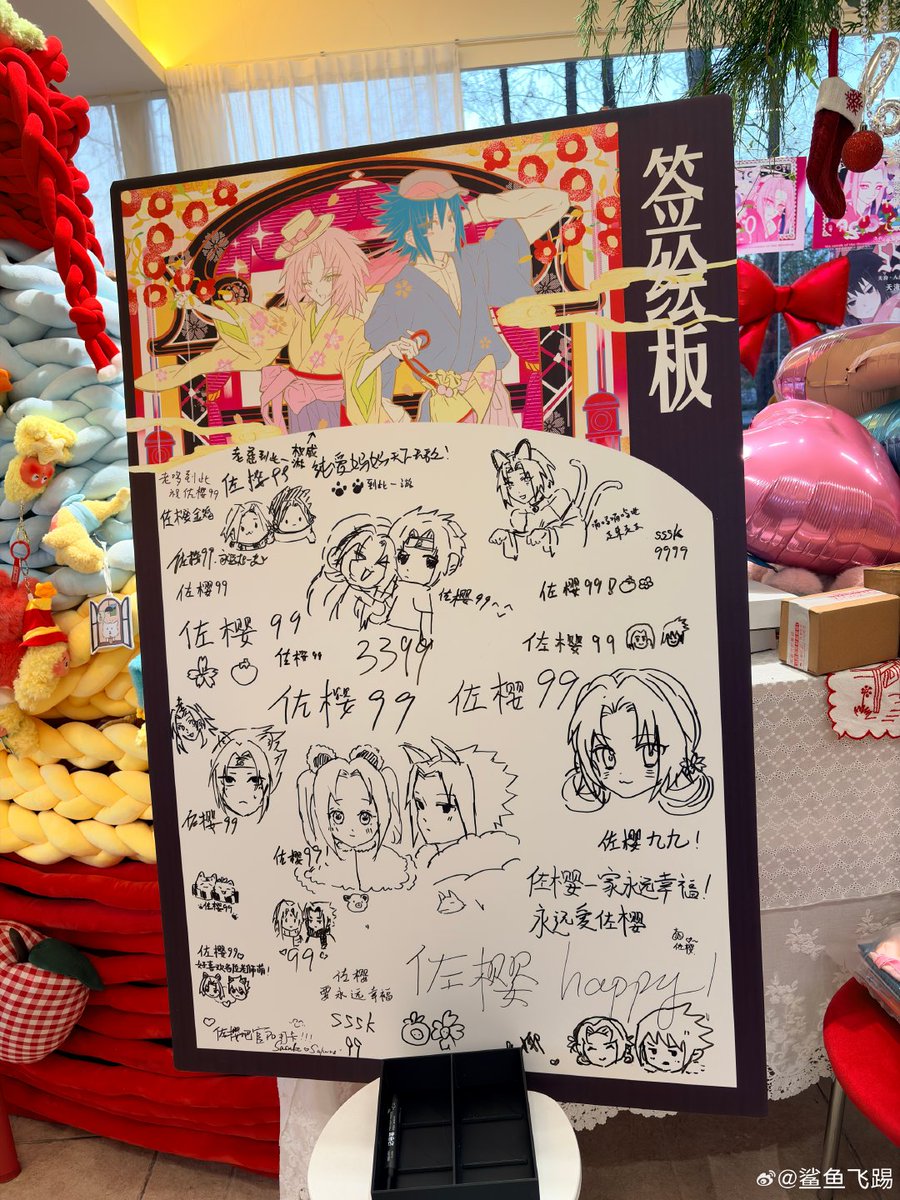 签绘板
老莲到此一
老哆到此
祝佐樱99
佐樱99
纯爱妈妈天下无敌!
到此一游
佐樱金婚
sssk
9999
佐樱99
佐樱99
佐樱99~
佐樱99!
佐樱99
佐樱99
3399
佐樱99
佐樱99
佐樱99
佐樱99
佐樱99
佐樱九九!
佐樱一家永远幸福!
永远爱佐樱
佐樱99
99
佐樱
佐樱99
佐樱
要永远幸福
佐樱 happy!
sssk
99
Sasuke Sakura
@鲨鱼飞踢